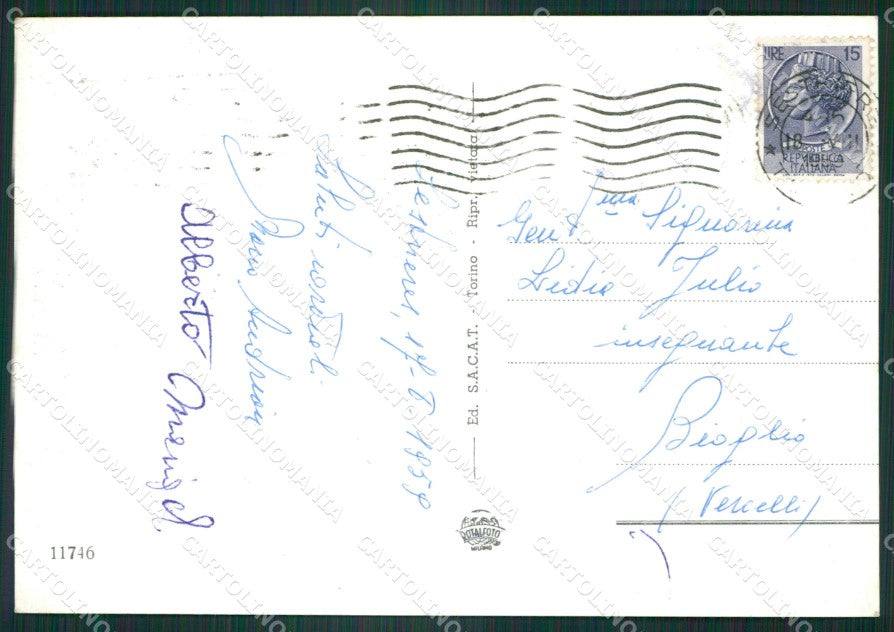 LIRE 15
POSTE
REPUBBLICA
ITALIANA
Sestrieres, 17-8-1959
Saluti cordiali
Alberto
Ed. S.A.C.A.T. - Torino - Ripr. vietata
Gent.ma Signorina
Lidia Julio
insegnante
Bioglio
(Vercelli)
ROTALFOTO
MILANO
11746
CARTOLINOMANIA